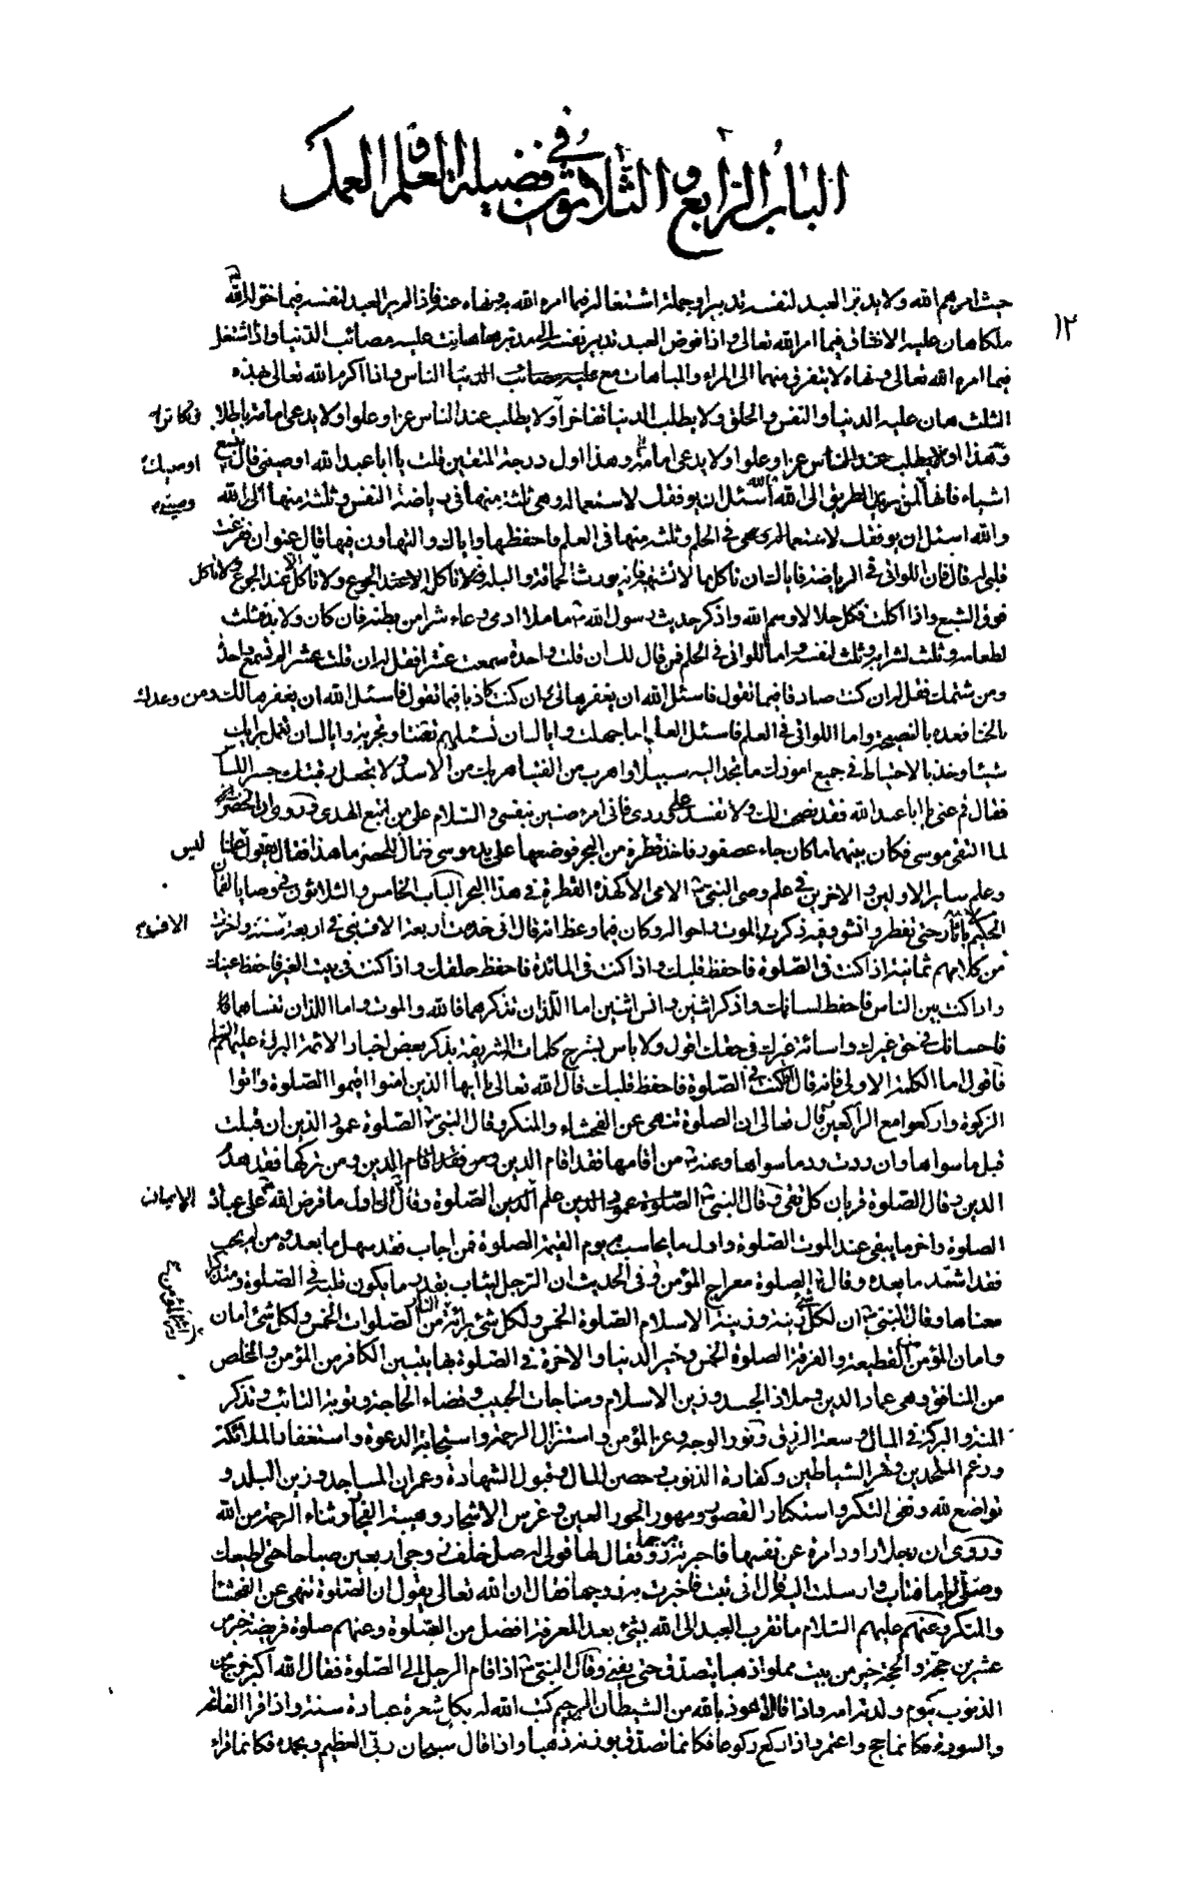 الباب الرابع والثلاثون في فضيلة العلم والعمل
١٢
حيث امرهم الله ولا يدبر العبد لنفسه تدبيرا وجملة اشتغاله فيما امره الله به ونهاه عنه فاذا لم ير العبد لنفسه فيما خوله الله
ملكا هان عليه الانفاق فيما امر الله تعالى واذا فوض العبد تدبير نفسه الى مدبرها هانت عليه مصائب الدنيا واذا اشتغل
فيما امره الله تعالى ونهاه لا يتفرغ منهما الى المراء والمباهات مع الناس واذا اكرم الله تعالى بهذه
الثلث هان عليه الدنيا والنفس والخلق ولا يطلب الدنيا تفاخرا ولا يطلب عند الناس عزا وعلوا ولا يدعى ايامه باطلا
وتكاثرا
وهذا اول درجة المتقين قلت يا ابا عبد الله اوصنى قال بتسع
اوصيك
اشياء فانها لمن يريد الطريق الى الله الله اسئل ان يوفقك لاستعماله وهى ثلثة منها فى رياضة النفس وثلثة منها
وصيتى
فى الحلم وثلثة منها فى العلم فاحفظها واياك والتهاون فيها قال عنوان ففرغت
قلبى له قال فان اللواتى فى الرياضة فاياك ان تاكل ما لا تشتهيه فانه يورث الحماقة والبله ولا تاكل الا عند الجوع
فوق الشبع واذا اكلت فكل حلالا وسم الله واذكر حديث رسول الله ما ملا ادمى وعاء شرا من بطنه فان كان ولا بد فثلث
لطعامه وثلث لشرابه وثلث لنفسه واما اللواتى فى الحلم فمن قال لك ان قلت واحدة سمعت عشرا فقل له ان قلت عشرا لم تسمع واحدة
ومن شتمك فقل له ان كنت صادقا فيما تقول فاسئل الله ان يغفرها لى وان كنت كاذبا فيما تقول فاسئل الله ان يغفرها لك
ومن وعدك
بالخنا فعده بالنصيحة واما اللواتى فى العلم فاسئل العلماء ما جهلت واياك ان تسئلهم تعنتا وتجربة واياك ان تعمل برايك
شيئا وخذ بالاحتياط فى جميع امورك ما تجد اليه سبيلا واهرب من الفتيا هربك من الاسد ولا تجعل رقبتك جسرا للناس
فقال قم عنى يا ابا عبد الله فقد نصحت لك ولا تفسد على وردى فانى امرء ضنين بنفسى والسلام على من اتبع الهدى
لما التقى موسى فكان بينهما ما كان جاء عصفور فاخذ قطرة من البحر فوضعها على يد موسى فقال للخضر ما هذا فقال يقول
ليس
وعلم ساير الاولين والاخرين فى علم وصى النبى الامى الا كهذه القطرة فى هذا البحر الباب الخامس والثلاثون فى وصايا لقمان
الحكيم
وكان فيما وعظ انه قال انى خدمت اربعة الاف نبى فى اربعة سنة واخترت
من كلامهم ثمانية اذا كنت فى الصلوة فاحفظ قلبك واذا كنت فى المائدة فاحفظ حلقك واذا كنت فى بيت الغير فاحفظ عينك
واذا كنت بين الناس فاحفظ لسانك واذكر اثنين وانس اثنين اما اللذان تذكرهما فالله والموت واما اللذان تنساهما
فاحسانك فى حق غيرك واسائة غيرك فى حقك اقول ولا باس بشرح كلمات الشريفة بذكر بعض اخبار الائمة البررة عليهم السلام
فاقول اما الكلمة الاولى فانه قال اذا كنت فى الصلوة فاحفظ قلبك قال الله تعالى يا ايها الذين امنوا اقيموا الصلوة واتوا
الزكوة واركعوا مع الراكعين قال تعالى ان الصلوة تنهى عن الفحشاء والمنكر وقال النبى الصلوة عمود الدين ان قبلت
قبل ما سواها وان ردت رد ما سواها وعنه من اقامها فقد اقام الدين ومن تركها فقد هدم
الدين وقال الصلوة قربان كل تقى وقال النبى علم الصلوة وقال اول ما فرض الله على عباده
الايمان
الصلوة واخر ما يبقى عند الموت الصلوة واول ما يحاسب به يوم القيمة الصلوة فمن اجاب فقد سهل ما بعده ومن لم يجب
فقد اشتد ما بعده وقال الصلوة معراج المؤمن وفى الحديث ان الرجل يثاب بقدر ما يكون قلبه فى الصلوة
معناها وقال النبى ان لكل شئ زينة وزينة الاسلام الصلوة الخمس ولكل شئ برائة من النار الصلوات الخمس ولكل شئ امان
وامان المؤمن القطيعة والفرقة الصلوة الخمس وخير الدنيا والاخرة فى الصلوة بها يتبين الكافر من المؤمن والمخلص
من المنافق وهى عماد الدين وملاذ الجسد وزين الاسلام ومناجات الحبيب وقضاء الحاجة وتوبة التائب وتذكر
المنية والبركة فى المال وسعة الرزق ونور الوجه وعز المؤمن واستنزال الرحمة واستجابة الدعوة واستغفار الملائكة
ورغم الملحدين وقهر الشياطين وكفارة الذنوب وحصن المال وقبول الشهادة وعمران المساجد وزين البلد و
تواضع لله ونفى التكبر واستكثار القصور ومهور الحور العين وغرس الاشجار وهيبة الفجار ونثار الرحمة من الله
وروى ان رجلا راود امرئة عن نفسها فاخبرت زوجها فقال لها قولى له صل خلف زوجى اربعين صباحا حتى اطيعك
انى تبت فاخبرت به زوجها فقال ان الله تعالى يقول ان الصلوة تنهى عن الفحشاء
والمنكر وعنهم عليهم السلام ما تقرب العبد الى الله بشئ بعد المعرفة افضل من الصلوة وعنهم صلوة فريضة خير من
عشرين حجة والحجة خير من بيت مملو ذهبا يتصدق حتى يفنى وقال النبى اذا قام الرجل الى الصلوة فقال الله اكبر خرج من
الذنوب كيوم ولدته امه واذا قال اعوذ بالله من الشيطان الرجيم كتب الله له بكل شعرة عبادة سنة واذا قرا الفاتحة
والسورة فكانما حج واعتمر واذا ركع ركوعا فكانما تصدق بوزنه ذهبا واذا قال سبحان ربى العظيم وبحمده فكانما قراء